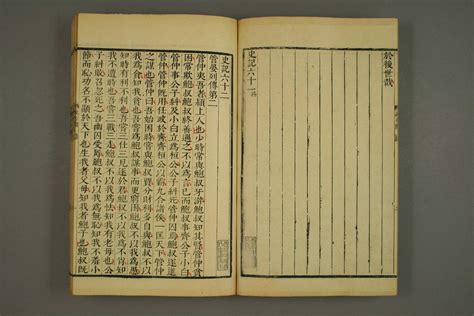 於後世哉
史記六十一
史記六十二
管晏列傳第二
管仲夷吾者潁上人也少時常與鮑叔牙游鮑叔知其賢管仲貧
困常欺鮑叔鮑叔終善遇之不以爲言已而鮑叔事齊公子小白
管仲事公子糾及小白立爲桓公公子糾死管仲囚焉鮑叔遂進
管仲管仲旣用任政於齊齊桓公以霸九合諸侯一匡天下管仲
之謀也管仲曰吾始困時嘗與鮑叔賈分財利多自與鮑叔不以
我爲貪知我貧也吾嘗爲鮑叔謀事而更窮困鮑叔不以我爲愚
知時有利不利也吾嘗三仕三見逐於君鮑叔不以我爲不肖知
我不遭時也吾嘗三戰三走鮑叔不以我爲怯知我有老母也公
子糾敗召忽死之吾幽囚受辱鮑叔不以我爲無恥知我不羞小
節而恥功名不顯于天下也生我者父母知我者鮑子也鮑叔旣